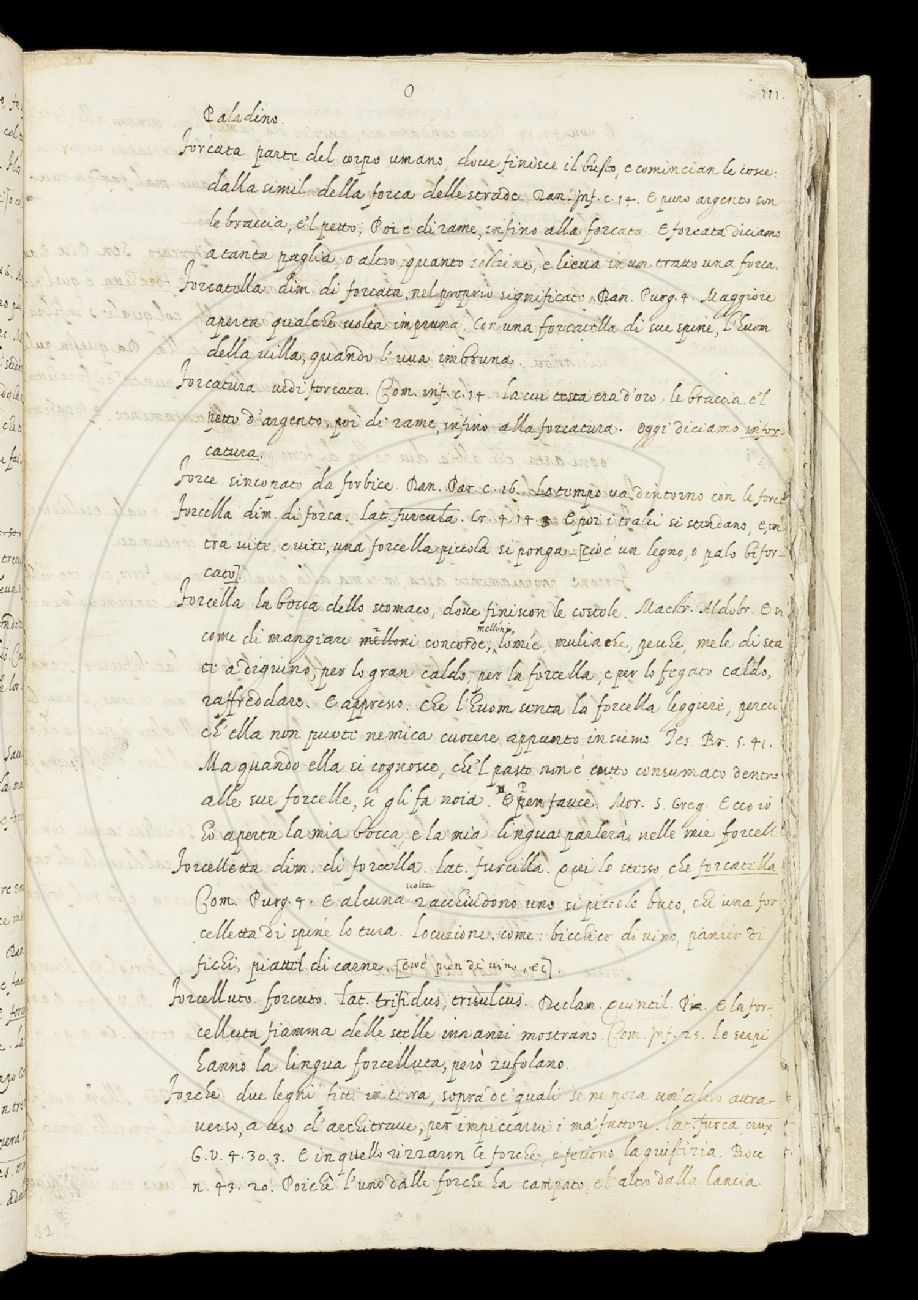 O
111.
Paladino.
Forcata parte del corpo umano dove finisce il busto, e comincian le cosce:
dalla simil. della forca delle strade. Dan. Inf. c. 14. E puro argento son
le braccia, e 'l petto, Poi è di rame, infino alla forcata. E forcata diciamo
a tanta paglia, o altro, quanto sostiene, e lieva in un tratto una forca.
Forcatella dim. di forcata, nel proprio significato. Dan. Purg. 4. Maggiore
aperta qualche volta impruna, Con una forcatella di sue spine, l'huom
della villa, quando l'uva imbruna.
Forcatura vedi forcata. Com. inf. c. 14. la cui testa era d'oro, le braccia e 'l
petto d'argento, poi di rame, infino alla forcatura. Oggi diciamo infor-
catura.
Force sincopato da forbice. Dan. Par. c. 16. Lo tempo va dintorno con le force
Forcella dim. di forca. lat. furcula. Cr. 4. 14. E poi i tralci si stendano, e, in
tra vite e vite, una forcella piccola si ponga [cioè un legno, o palo bifor-
cato].
Forcella la bocca dello stomaco, dove finiscon le costole. Maestr. Aldobr. E
come di mangiare melloni concorde, melloni, lomie, muliache, pesche, mele di sta
te a digiuno, per lo gran caldo, per la forcella, e per lo fegato caldo,
raffreddare. E appresso. Che l'huom senta la forcella leggieri, perciò
ch'ella non puote nemica cuocere appunto insieme. Tes. Br. 5. 41.
Ma quando ella si cognosce, che 'l pasto non è tutto consumato dentro
alle sue forcelle, sì gli fa noia. E per fauce. Mor. S. Greg. Ecco io
ho aperta la mia bocca, e la mia lingua parlerà nelle mie forcell
Forcelletta dim. di forcella. lat. furcilla. Qui lo stesso che forcatella
Com. Purg. 4. E alcuna volta racchiudono uno sì piccolo buco, che una for
celletta di spine lo tura. locuzione, come: bicchier di vino, panier di
fichi, piattel di carne. [cioè pien di vino, ec].
Forcelluto. forcuto. lat. trifidus, trisulcus. Declam. Quintil. E la for-
celluta fiamma delle stelle innanzi mostrano. Com. Inf. 25. Le serpi
hanno la lingua forcelluta, però zufolano.
Forche due legni fitti in terra, sopra de' quali se ne posa un' altro attra-
verso, a uso d'architrave, per impiccarvi i malfattori. lat. furca crux
G. V. 4. 30. 3. E in quello rizzaron le forche, e feciono la giustizia. Bocc
n. 43. 20. Poichè l'uno dalle forche ha campato, e l'altro dalla lancia